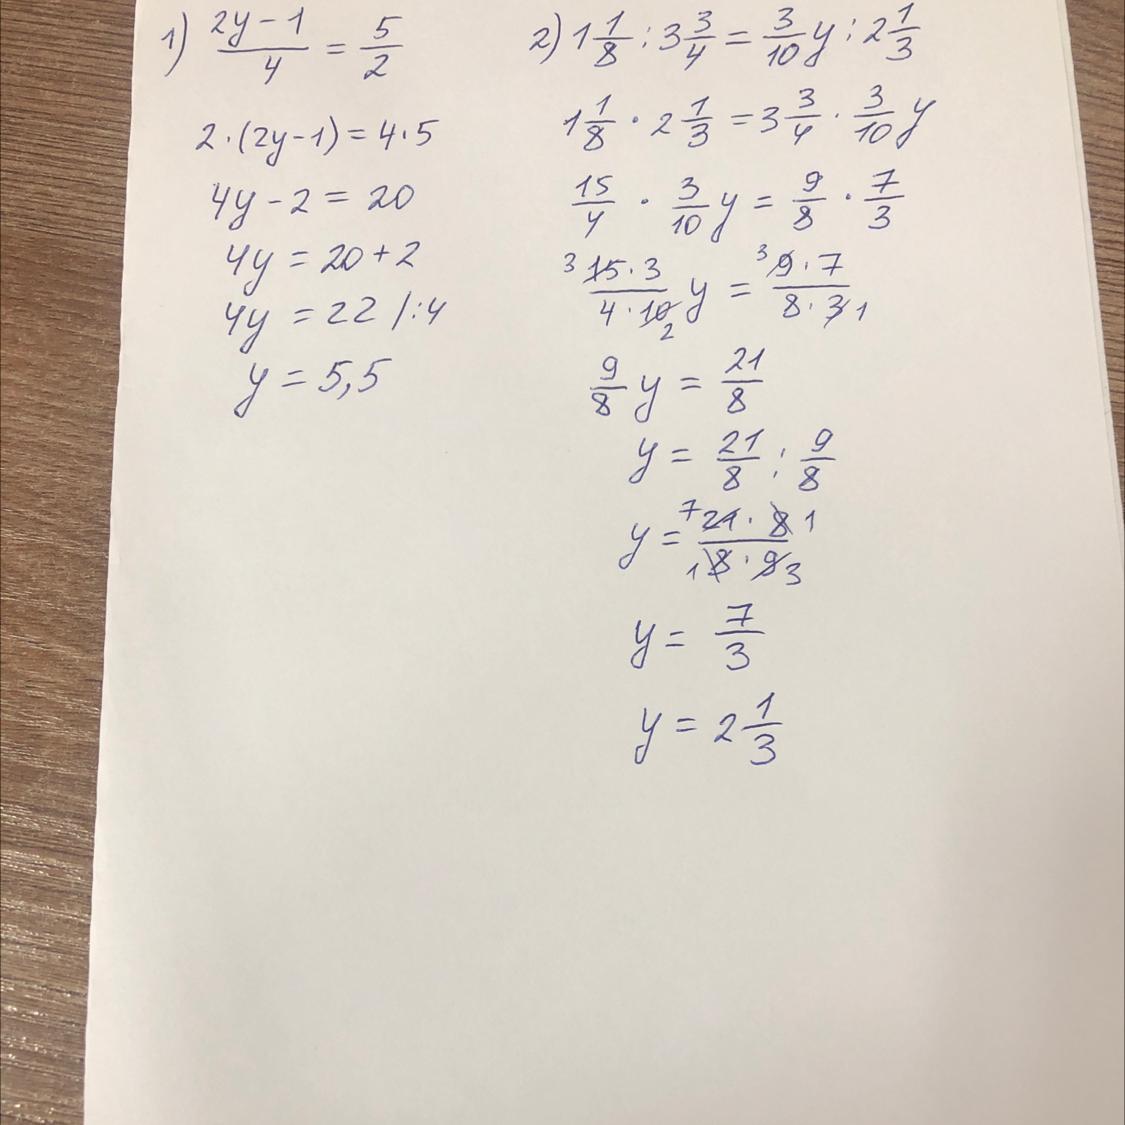 1) (2y - 1)/4 = 5/2
2·(2y-1) = 4·5
4y - 2 = 20
4y = 20 + 2
4y = 22 |:4
y = 5,5
2) 1 1/8 : 3 3/4 = 3/10 y : 2 1/3
1 1/8 · 2 1/3 = 3 3/4 · 3/10 y
15/4 · 3/10 y = 9/8 · 7/3
3 15·3/4·10 2 y = 3 9·7/8·3 1
9/8 y = 21/8
y = 21/8 : 9/8
y = 7 21·8 1/1 8·9 3
y = 7/3
y = 2 1/3